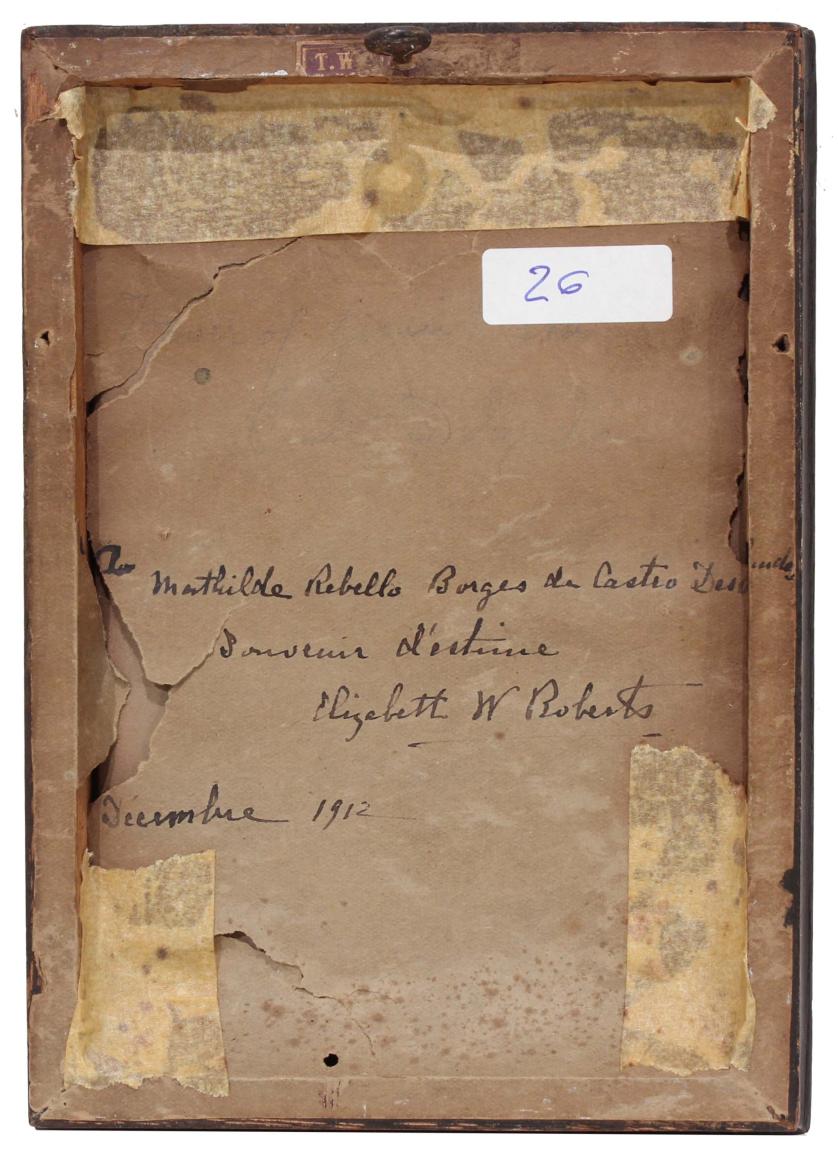 T.W
26
of
To Mathilde Rebello Borges de Castro
Souvenir d'estime
Elizabeth W Roberts
Décembre 1912